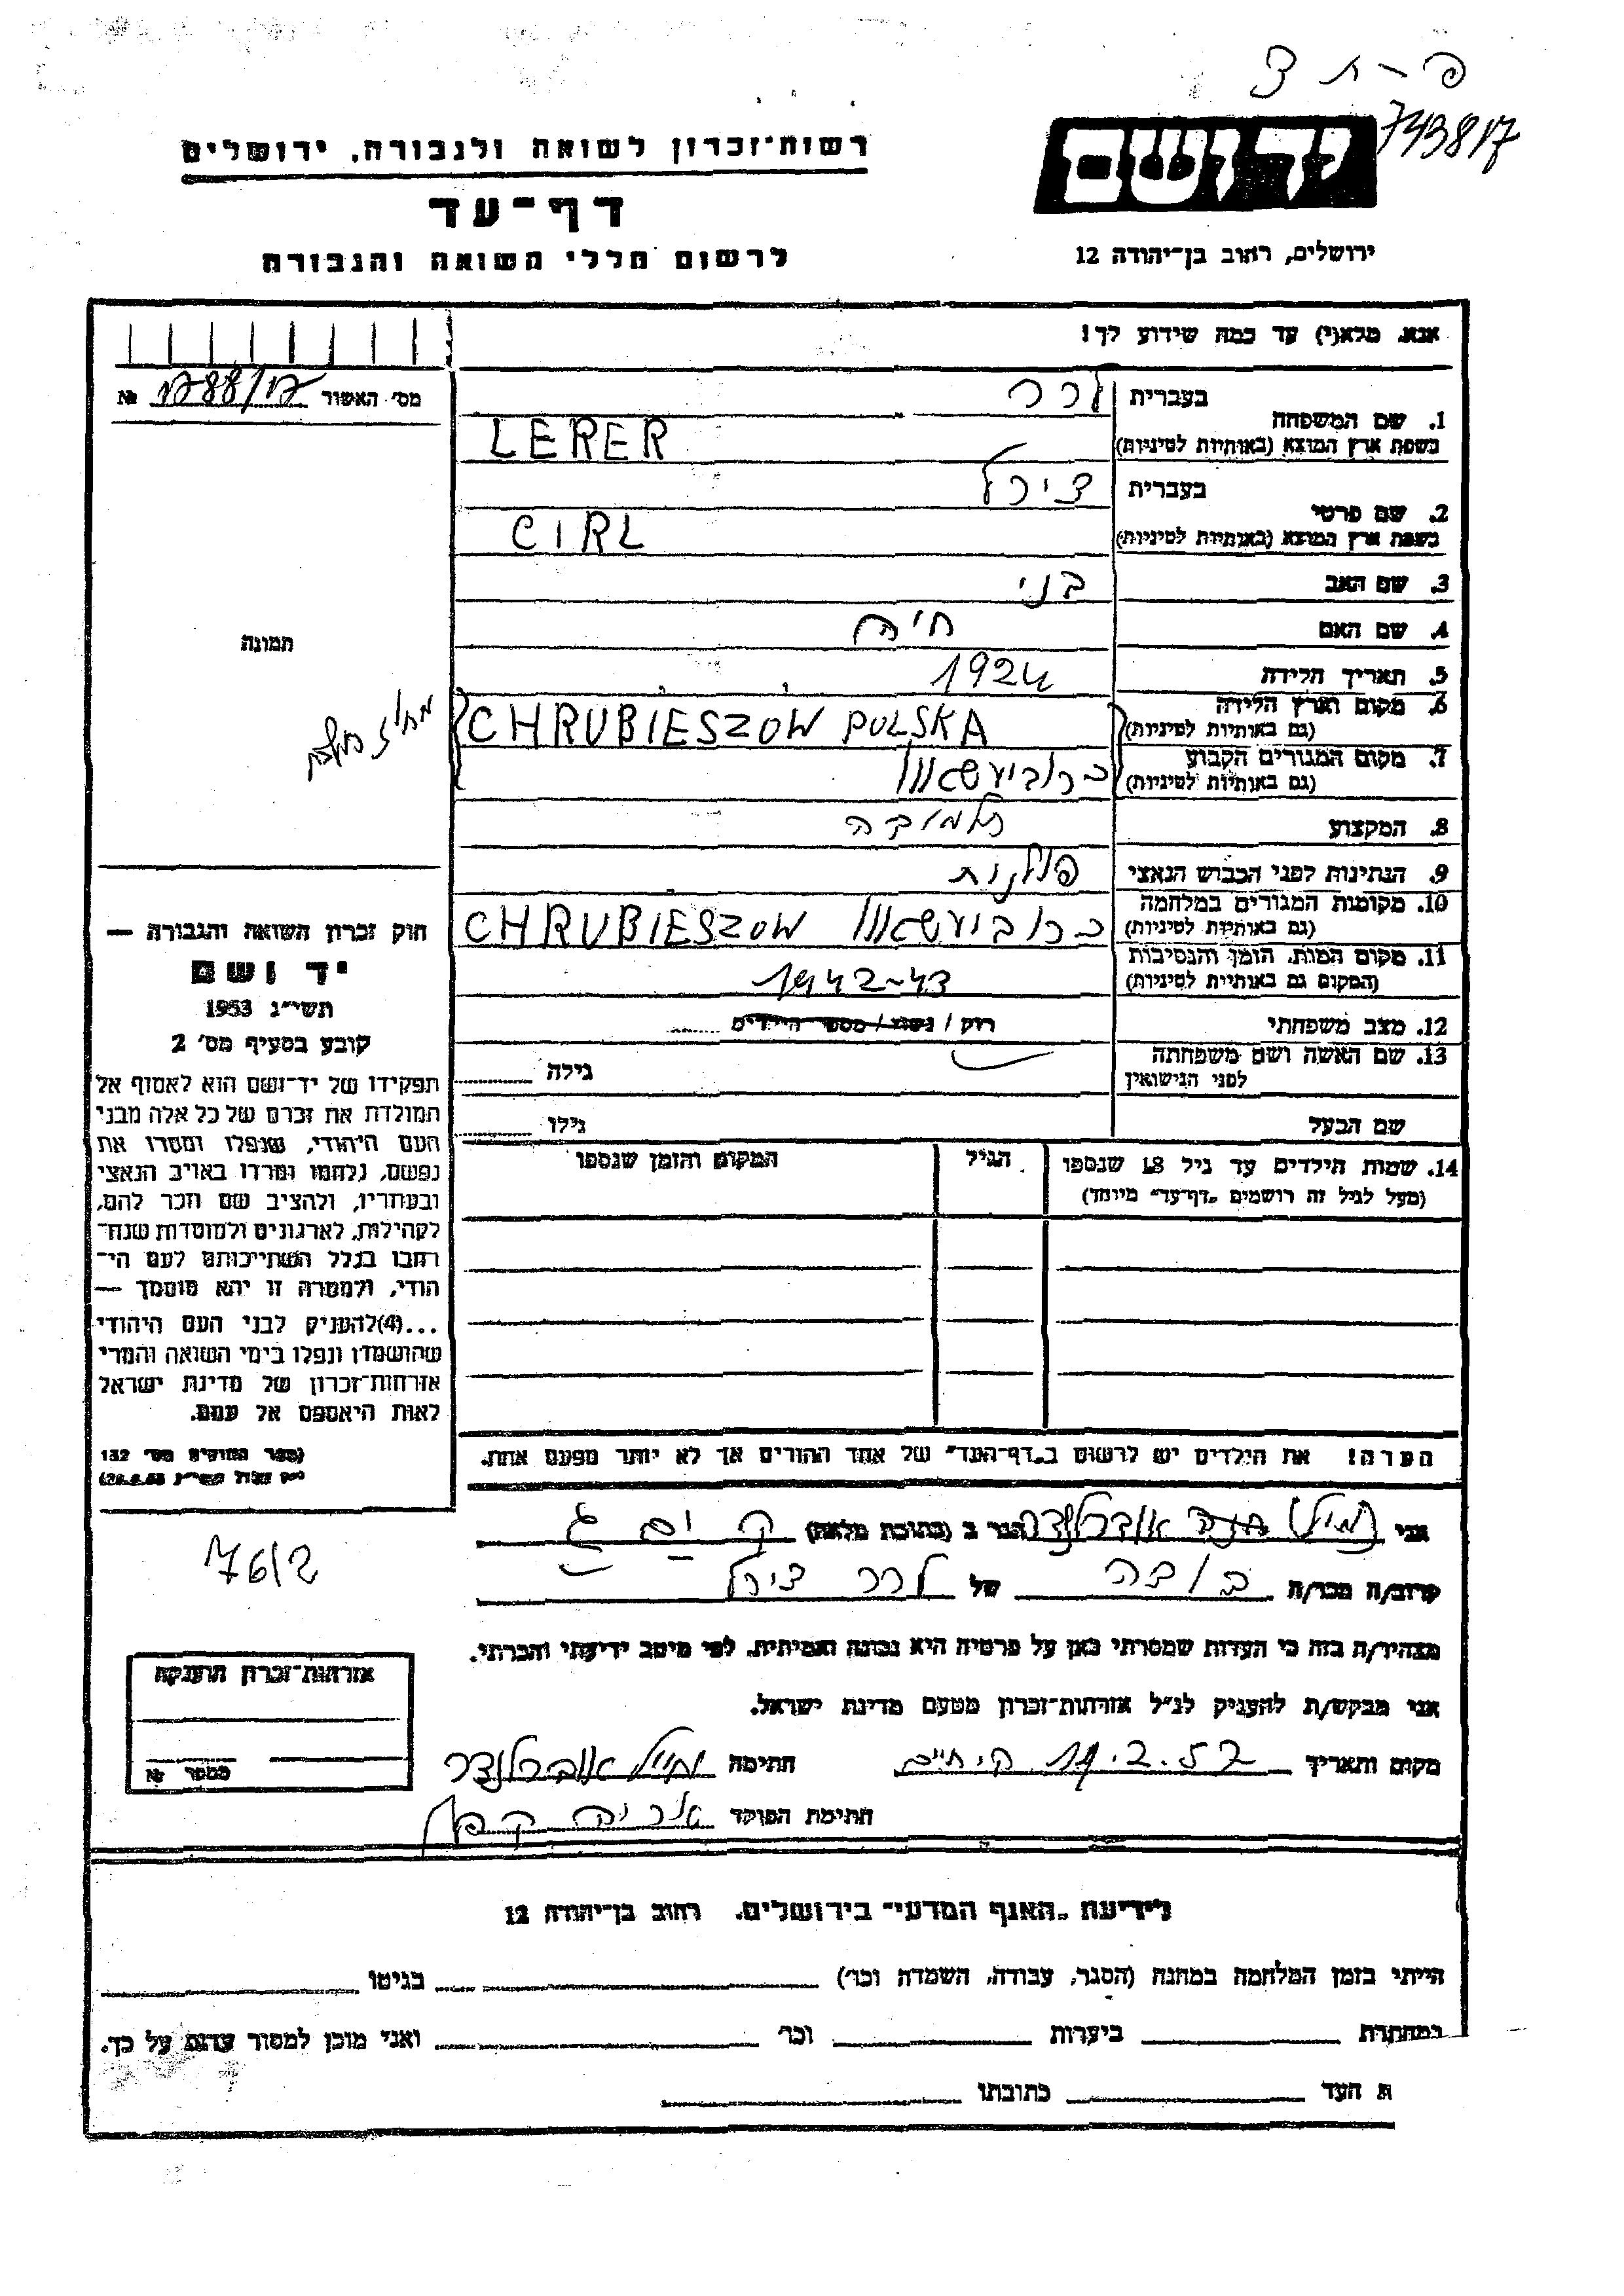 פ - ת צ
743817
יד ושם
ירושלים, רחוב בן־יהודה 12
רשות־זכרון לשואה ולגבורה, ירושלים
דף־עד
לרשום חללי השואה והגבורה
אנא, מלא(י) עד כמה שידוע לך!
מס׳ האשור №
1. שם המשפחה
בעברית לרר
בשפת ארץ המוצא (באותיות לטיניות) LERER
2. שם פרטי
בעברית צירל
בשפת ארץ המוצא (באותיות לטיניות) CIRL
3. שם האב בני
4. שם האם חיה
5. תאריך הלידה 1924
6. מקום וארץ הלידה
(גם באותיות לטיניות) CHRUBIESZOW POLSKA
7. מקום המגורים הקבוע
(גם באותיות לטיניות) כרוביעשאוו
8. המקצוע
9. הנתינות לפני הכבוש הנאצי פולנית
10. מקומות המגורים במלחמה
(גם באותיות לטיניות) כרוביעשאוו CHRUBIESZOW
11. מקום המות, הזמן והנסיבות
(המקום גם באותיות לטיניות) 1942-43
12. מצב משפחתי רווק / נשוי / מספר הילדים
13. שם האשה ושם משפחתה
לפני הנישואין גילה
שם הבעל גילו
14. שמות הילדים עד גיל 18 שנספו הגיל המקום והזמן שנספו
(מעל לגיל זה רושמים "דף־עד" מיוחד)
הערה! את הילדים יש לרשום ב"דף־העד" של אחד ההורים אך לא יותר מפעם אחת.
תמונה
חוק זכרון השואה והגבורה —
יד ושם
תשי״ג 1953
קובע בסעיף מס׳ 2
תפקידו של יד־ושם הוא לאסוף אל
המולדת את זכרם של כל אלה מבני
העם היהודי, שנפלו ומסרו את
נפשם, נלחמו ומרדו באויב הנאצי
ובעוזריו, ולהציב שם וזכר להם,
לקהילות, לארגונים ולמוסדות שנח־
רבו בגלל השתייכותם לעם הי־
הודי, ולמטרה זו יהא מוסמך —
...(4) להעניק לבני העם היהודי
שהושמדו ונפלו בימי השואה והמרי
אזרחות־זכרון של מדינת ישראל
לאות היאספם אל עמם.
(ספר החוקים מס׳ 132
7612
אני אוברלנדר הגר ב (כתובת מלאה) ק ים
קרוב/ה מכר/ה של לרר צירל
מצהיר/ה בזה כי העדות שמסרתי כאן על פרטיה היא נכונה ואמיתית, לפי מיטב ידיעתי והכרתי.
אני מבקש/ת להעניק לנ״ל אזרחות־זכרון מטעם מדינת ישראל.
מקום ותאריך ק. חיים 19.2.57 חתימה אוברלנדר
חתימת הפוקד אריה
אזרחות־זכרון הוענקה
מספר №
לידיעת "האגף המדעי" בירושלים, רחוב בן־יהודה 12
הייתי בזמן המלחמה במחנה (הסגר, עבודה, השמדה וכו׳) בגיטו
במחתרת ביערות וכו׳ ואני מוכן למסור עדות על כך.
ת העד כתובתו